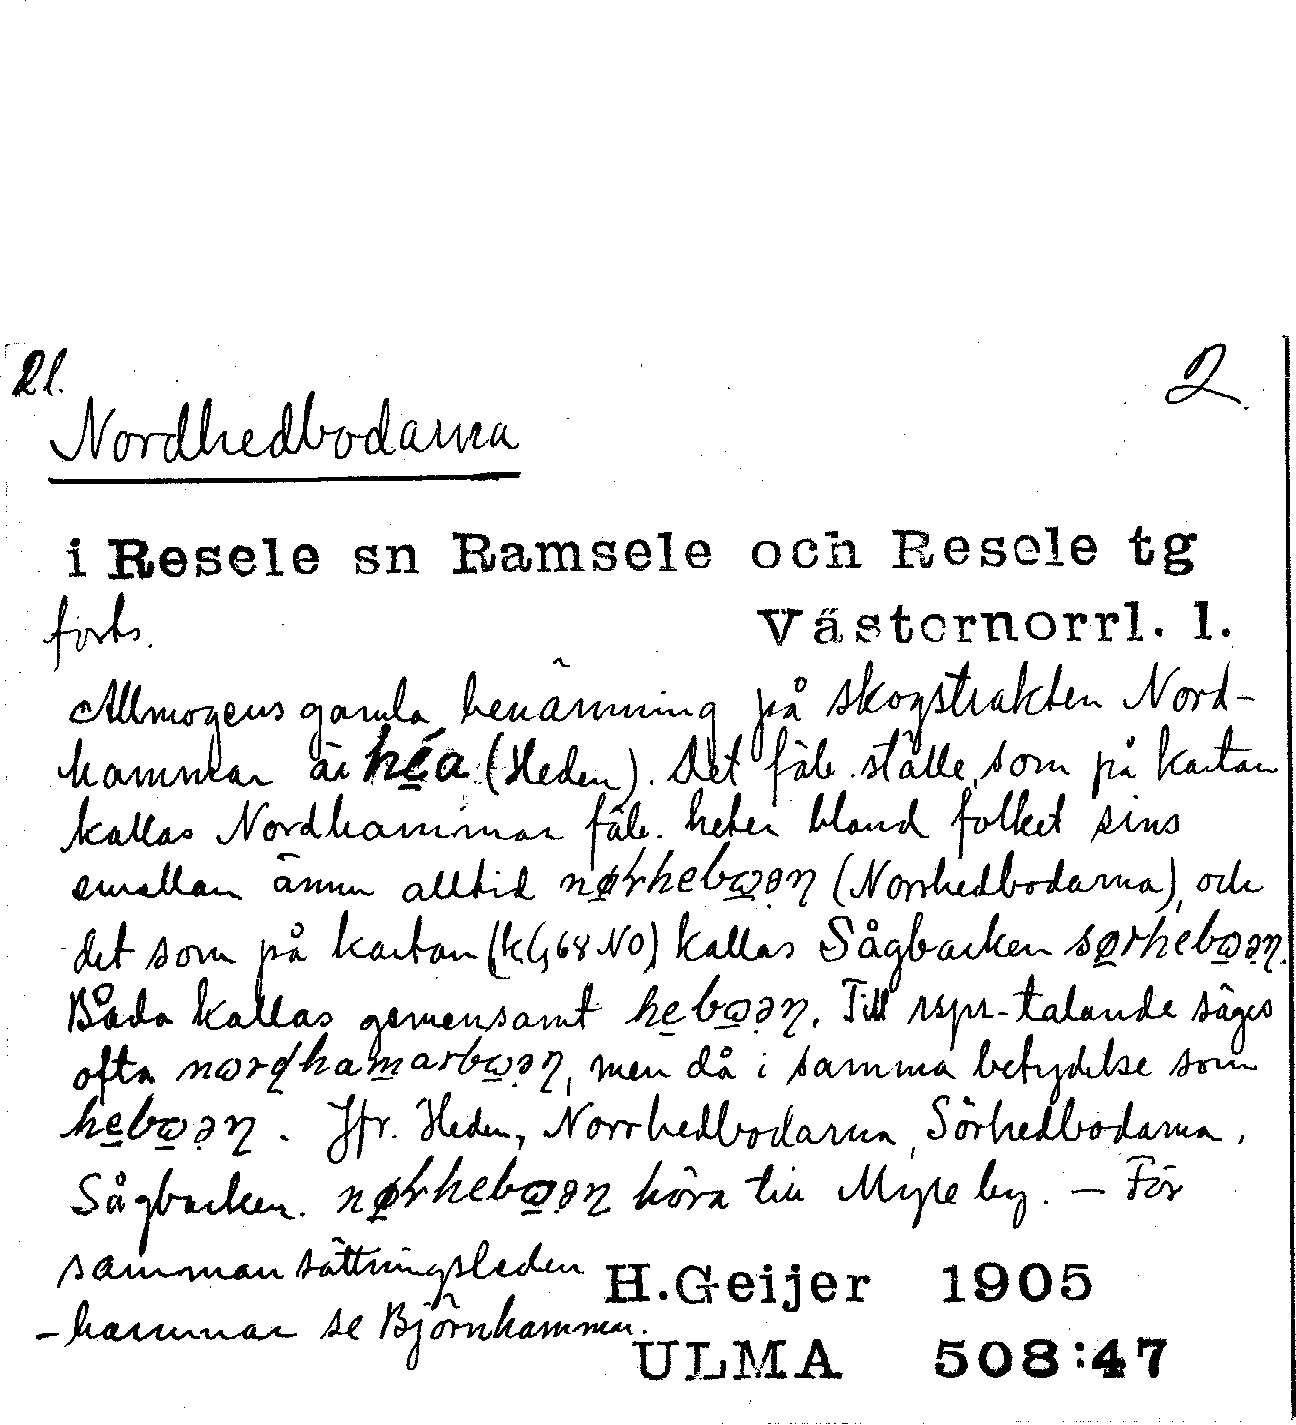 Rl. 2.
Nordhedbodarna
i Resele sn Ramsele och Resele tg
forts. Västernorrl. l.
Allmogens gamla benämning på skogstrakten Nord-
hammar är hé̲a (Heden). Det fäb. ställe, som på kartan
kallas Nordhammar fäb. heter bland folket sins
emellan ännu alltid nø̲rhebω̲əɳ (Norrhedbodarna), och
det som på kartan (kG, 68 NO) kallas Sågbacken sø̲rhebω̲əɳ.
Båda kallas gemensamt he̲bω̲əɳ. Till rspr-talande säges
ofta nωrdham̲arbω̲əɳ, men då i samma betydelse som
he̲bω̲əɳ. Jfr. Heden, Norrhedbodarna, Sörhedbodarna,
Sågbacken. nø̲rhebω̲əɳ höra till Myre by. – För
sammansättningsleden H.Geijer 1905
-hammar se Björnhammar.
ULMA 508:47